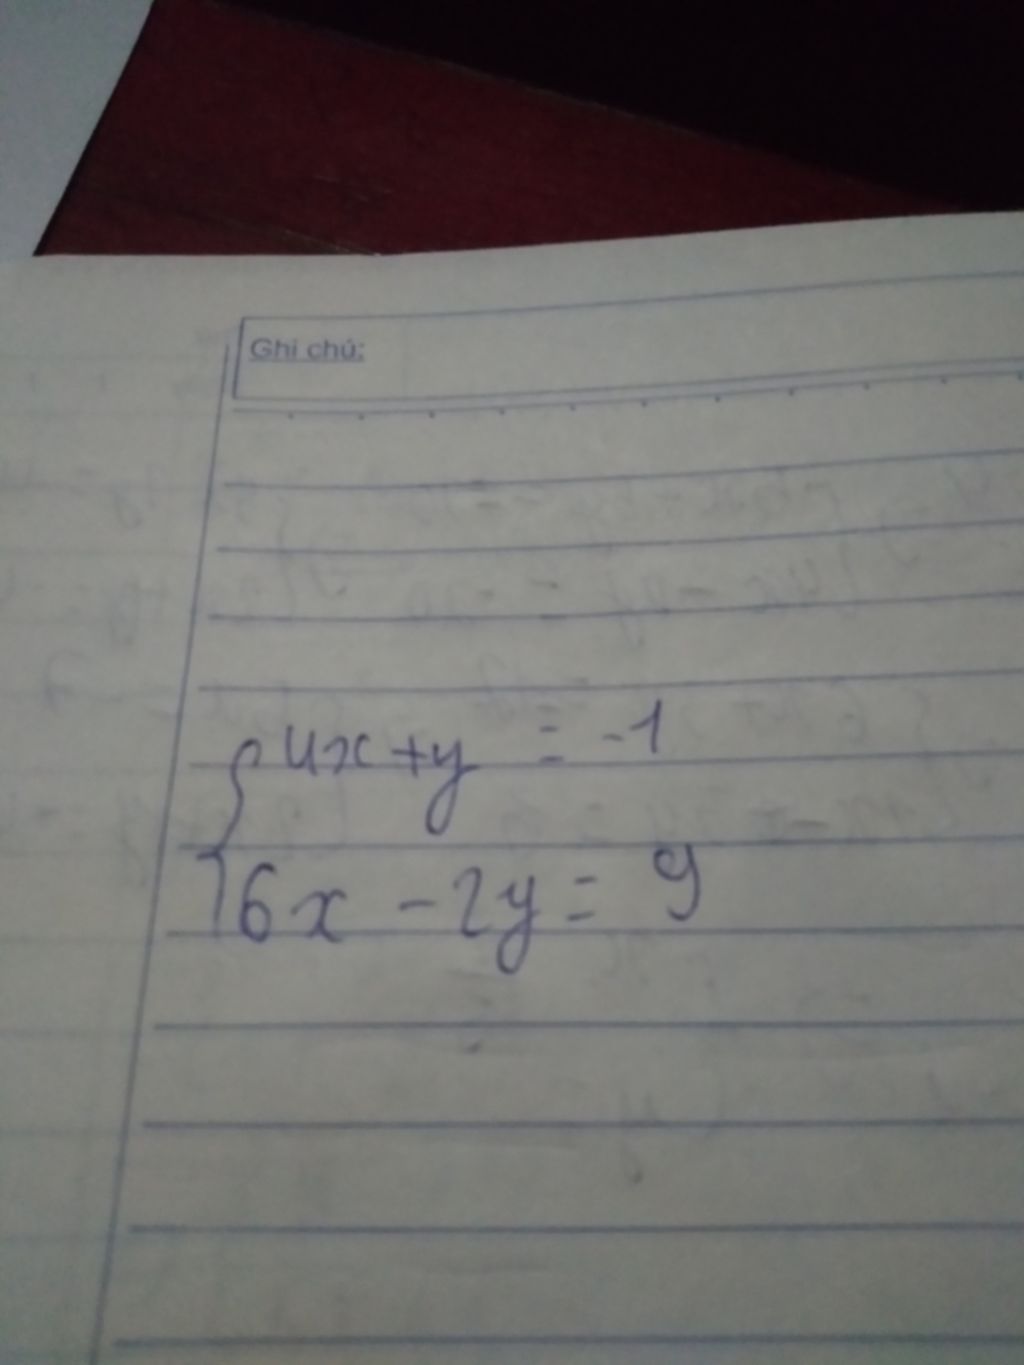 Ghi chú:
4x + y = -1
6x - 2y = 9